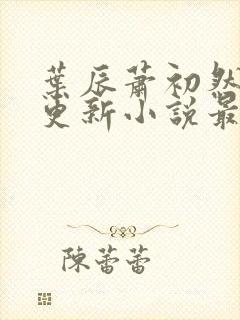 葉辰蕭初然
更新小説最
陳蕾蕾